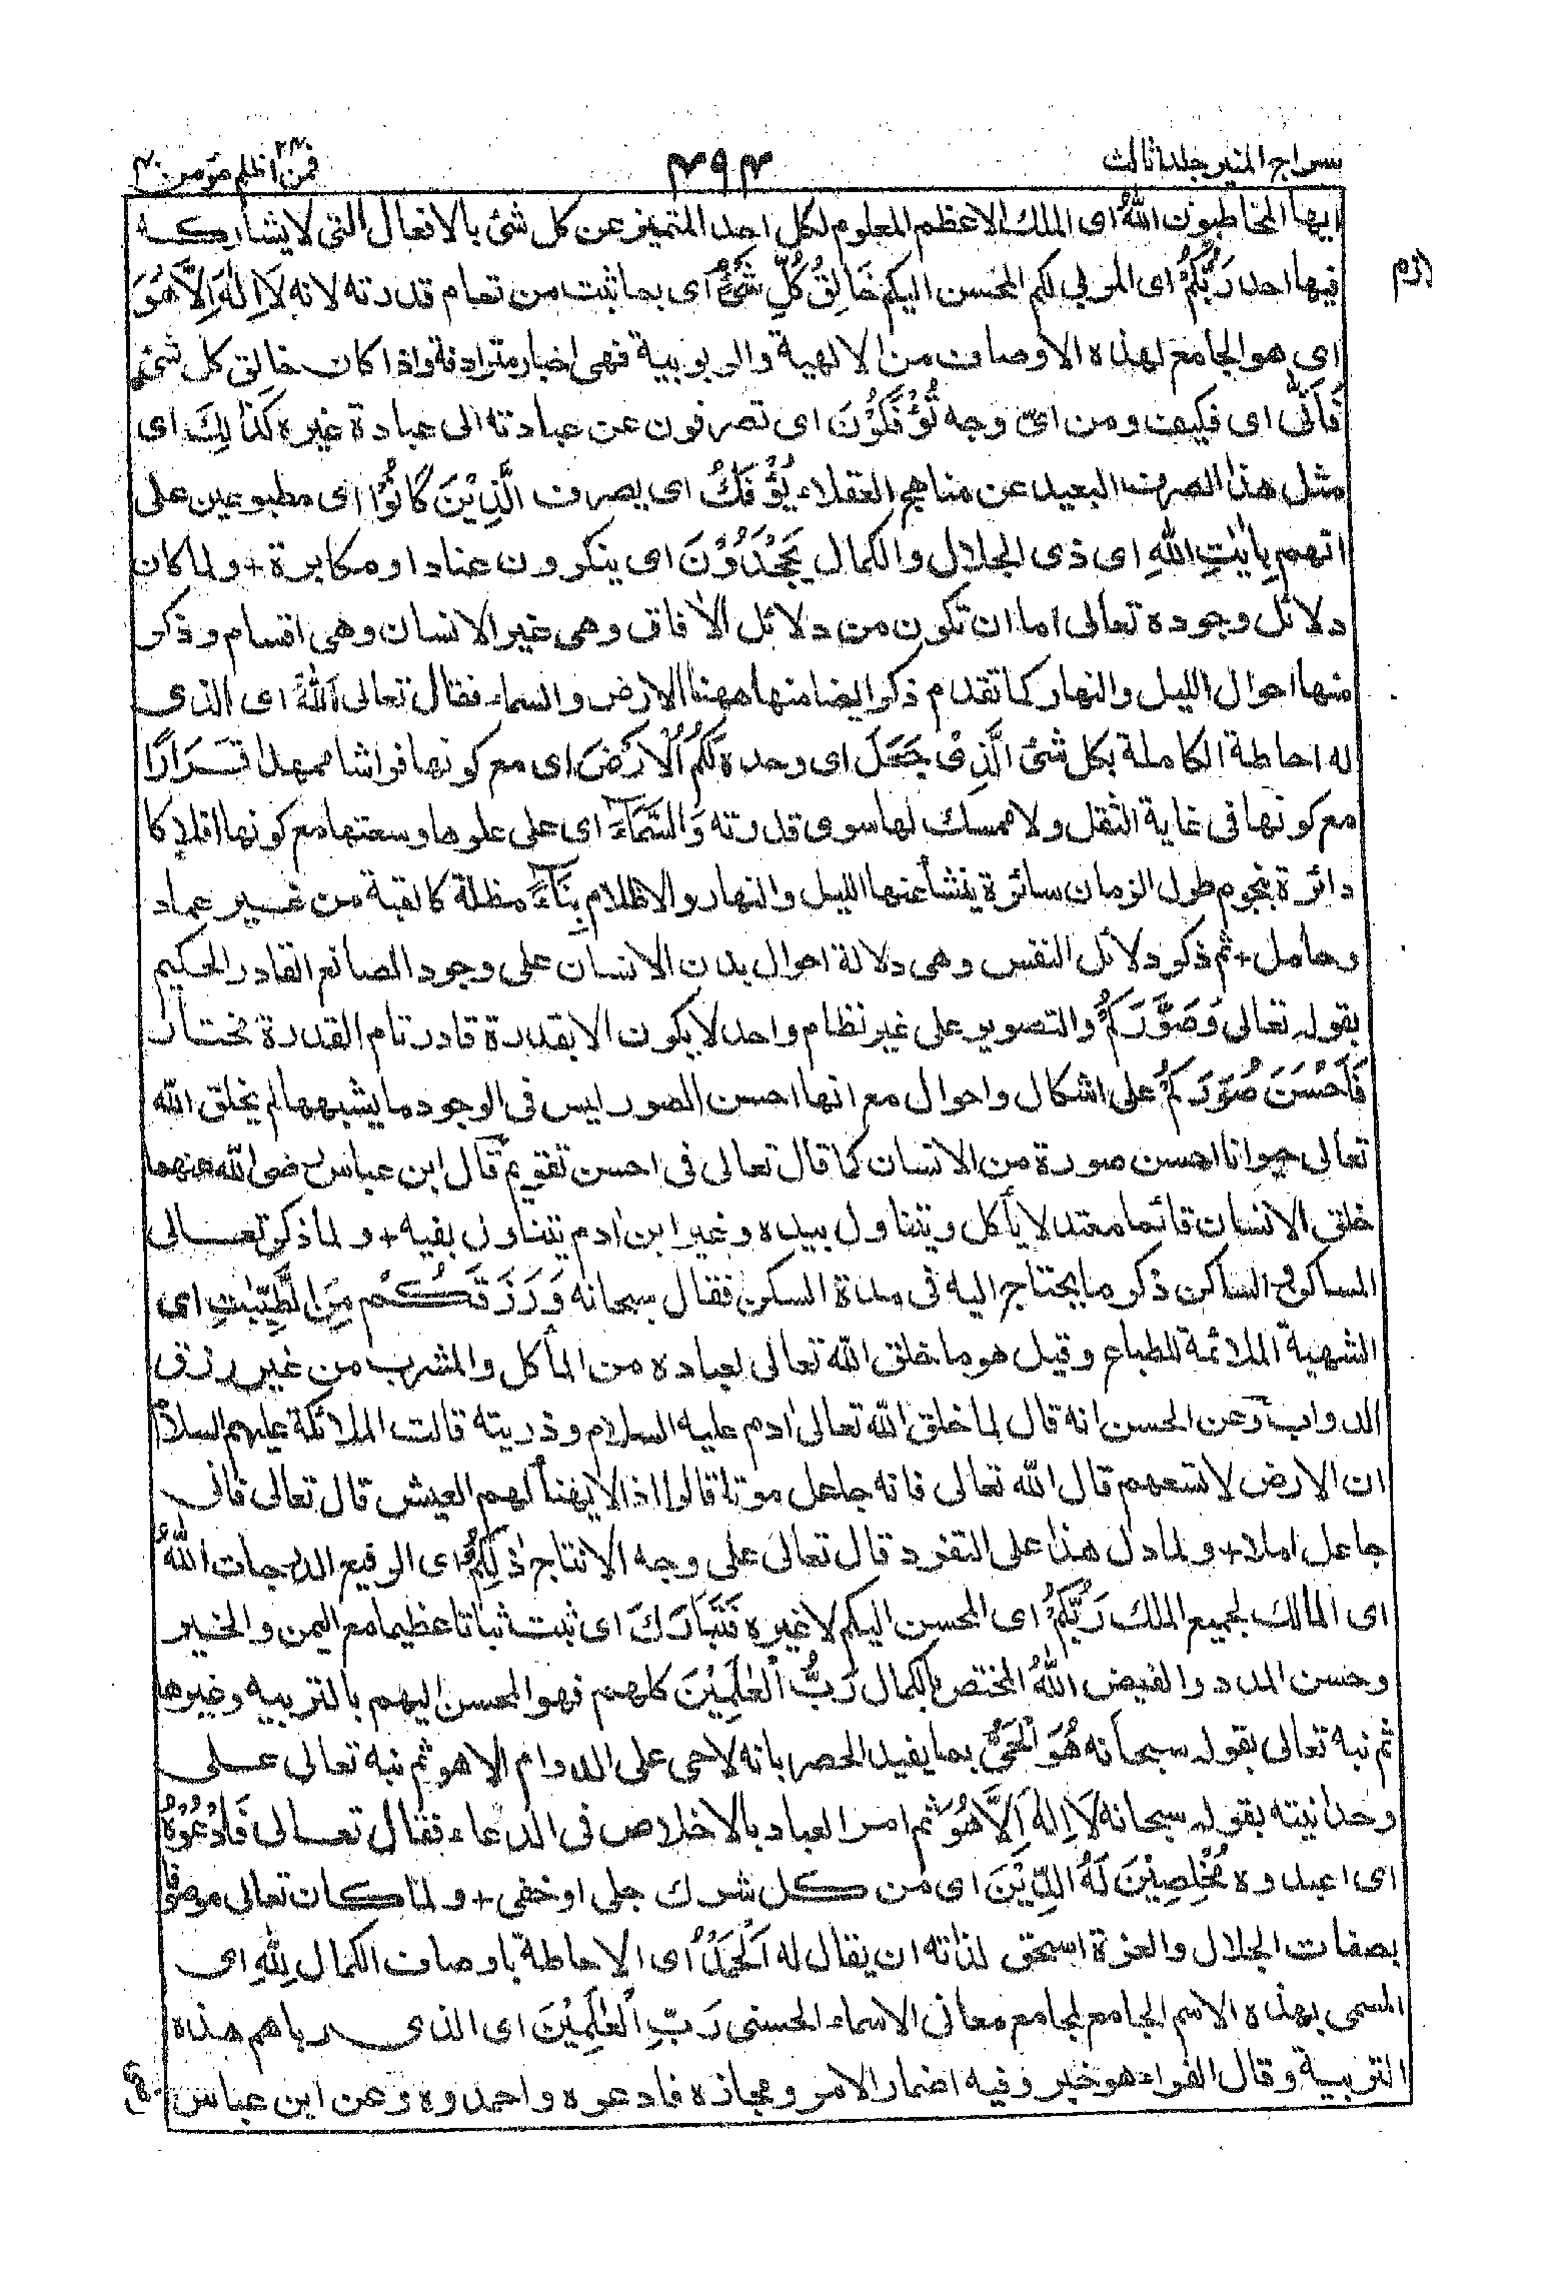 سراج المنير جلد ثالث
٤٩٤
فمن اظلم ٢٤ مؤمن ٤٠
ايها المخاطبون اللّٰهُ اى الملك الاعظم المعلوم لكل احد المتميز عن كل شئ بالافعال التى لا يشاركـــه
فيها احد رَبُّكُمْ اى المربى لكم المحسن اليكم خَالِقُ كُلِّ شَىْءٍ اى بما ثبت من تمام قدرته لانه لَا اِلٰهَ اِلَّا هُوَ
اى هو الجامع لهذه الاوصاف من الالهية والربوبية فهى اخبار مترادفة واذا كان خالق كل شئ
فَاَنّٰى اى فكيف ومن اىّ وجه تُؤْفَكُوْنَ اى تصرفون عن عبادته الى عبادة غيره كَذٰلِكَ اى
مثل هذا الصرف البعيد عن مناهج العقلاء يُؤْفَكُ اى يصرف الَّذِيْنَ كَانُوْا اى مطبوعين على
انهم بِاٰيٰتِ اللّٰهِ اى ذى الجلال والكمال يَجْحَدُوْنَ اى ينكرون عنادا ومكابرة + ولما كان
دلائل وجوده تعالى اما ان تكون من دلائل الاٰفاق وهى غير الانسان وهى اقسام وذكر
منها احوال الليل والنهار كما تقدم ذكر ايضا منها ههنا الارض والسماء فقال تعالى اَللّٰهُ اى الذى
له احاطة الكاملة بكل شئ الَّذِىْ جَعَلَ اى وحده لَكُمُ الْاَرْضَ اى مع كونها فراشا ممهدا قَــرَارًا
مع كونها فى غاية الثقل ولا ممسك لها سوى قدرته وَالسَّمَآءَ اى على علوها وسعتها مع كونها افلاكا
دائرة بنجوم طول الزمان سائرة ينشأ عنها الليل والنهار والاظلام بِنَآءً مظلة كالقبة من غــير عماد
وحامل + ثم ذكر دلائل النفس وهى دلالة احوال بدن الانسان على وجود الصانع القادر الحكيم
بقوله تعالى وَصَوَّرَكُمْ والتصوير على غير نظام واحد لا يكون الا بقدرة قادر تام القدرة مختار
فَاَحْسَنَ صُوَرَكُمْ على اشكال واحوال مع انها احسن الصور ليس فى الوجود ما يشبهها لم يخلق اللّٰه
تعالى حيوانا احسن صورة من الانسان كما قال تعالى فى احسن تقويم قال ابن عباس رضى اللّٰه عنهما
خلق الانسان قائما معتدلا يأكل ويتناول بيده وغير ابن اٰدم يتناول بفيه + ولما ذكر تعــالى
المساكن والساكن ذكر ما يحتاج اليه فى مدة السكن فقال سبحانه وَرَزَقَــكُــمْ مِنَ الطَّيِّبٰتِ اى
الشهية الملائمة للطباع وقيل هو ما خلق اللّٰه تعالى لعباده من المأكل والمشرب من غير رزق
الدواب وعن الحسن انه قال لما خلق اللّٰه تعالى اٰدم عليه السلام وذريته قالت الملائكة عليهم السلام
ان الارض لا تسعهم قال اللّٰه تعالى فانه جاعل موتا قالوا اذا لا يهنأ لهم العيش قال تعالى فانى
جاعل املا + ولما دل هذا على التفرد قال تعالى على وجه الانتاج ذٰلِكُمُ اى الرفيع الدرجات اللّٰهُ
اى المالك لجميع الملك رَبُّكُمْ اى المحسن اليكم لا غيره فَتَبَارَكَ اى ثبت ثباتا عظيما مع اليمن والخــير
وحسن المدد والفيض اللّٰهُ المختص بالكمال رَبُّ الْعٰلَمِيْنَ كلهم فهو المحسن اليهم بالتربيه وغيرها
ثم نبه تعالى بقوله سبحانه هُوَ الْحَىُّ بما يفيد الحصر بانه لا حى على الدوام الا هو ثم نبه تعالى عــلى
وحدانيته بقوله سبحانه لَا اِلٰهَ اِلَّا هُوَ ثم امر العباد بالاخلاص فى الدعاء فقال تعــالى فَادْعُوْهُ
اى اعبدوه مُخْلِصِيْنَ لَهُ الدِّيْنَ اى من كــل شرك جلى او خفى + ولما كــان تعالى موصوفا
بصفات الجلال والعزة استحق لذاته ان يقال له اَلْحَمْدُ اى الاحاطة باوصاف الكمال لِلّٰهِ اى
المسمى بهذه الاسم الجامع لمجامع معانى الاسماء الحسنى رَبِّ الْعٰلَمِيْنَ اى الذى رباهم هذه
التربية وقال الفراء هو خبر وفيه اضمار الامر ومجازه فادعوه واحمدوه وعن ابن عباس